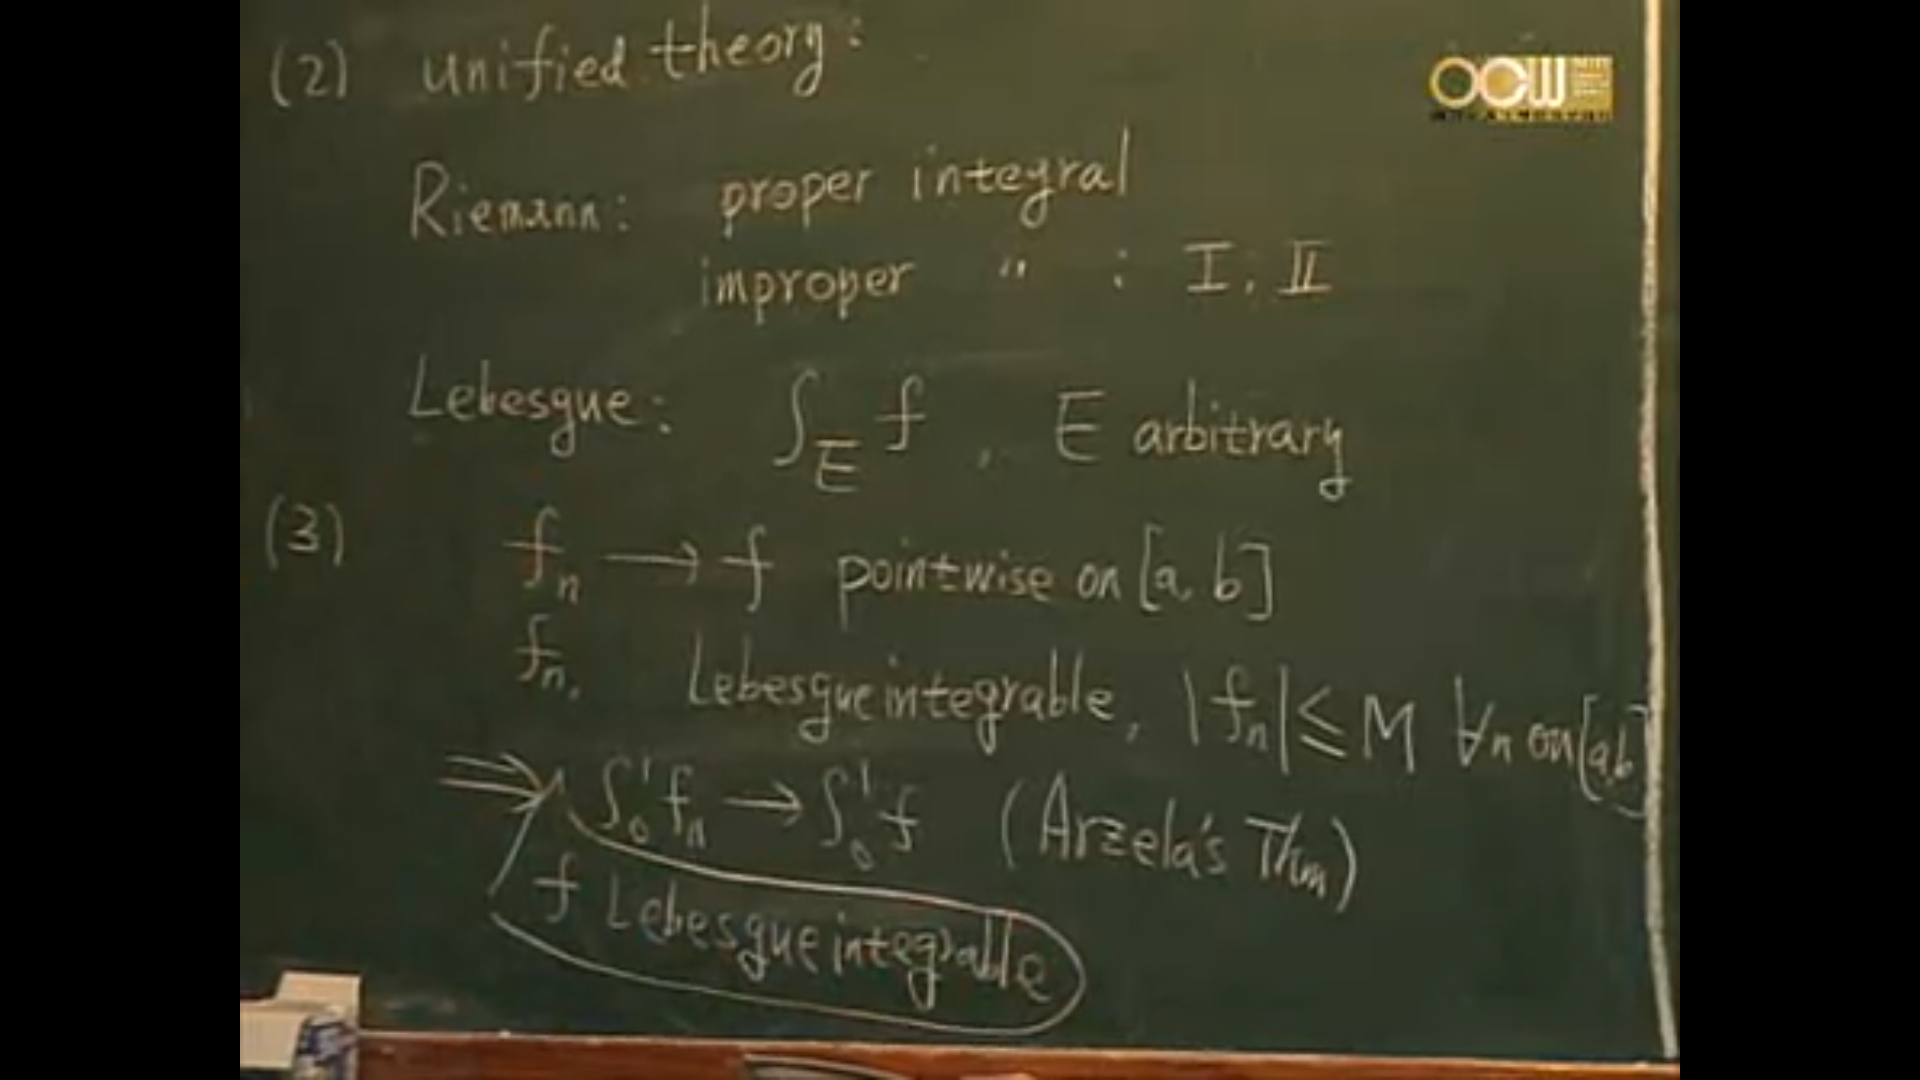 (2) unified theory:
OCW
Riemann: proper integral
improper " : I, II
Lebesgue: ∫_E f, E arbitrary
(3) f_n → f pointwise on [a, b]
f_n, Lebesgue integrable, |f_n| ≤ M ∀n on [a,b]
⇒ ∫₀¹ f_n → ∫₀¹ f (Arzela's Thm)
f Lebesgue integrable